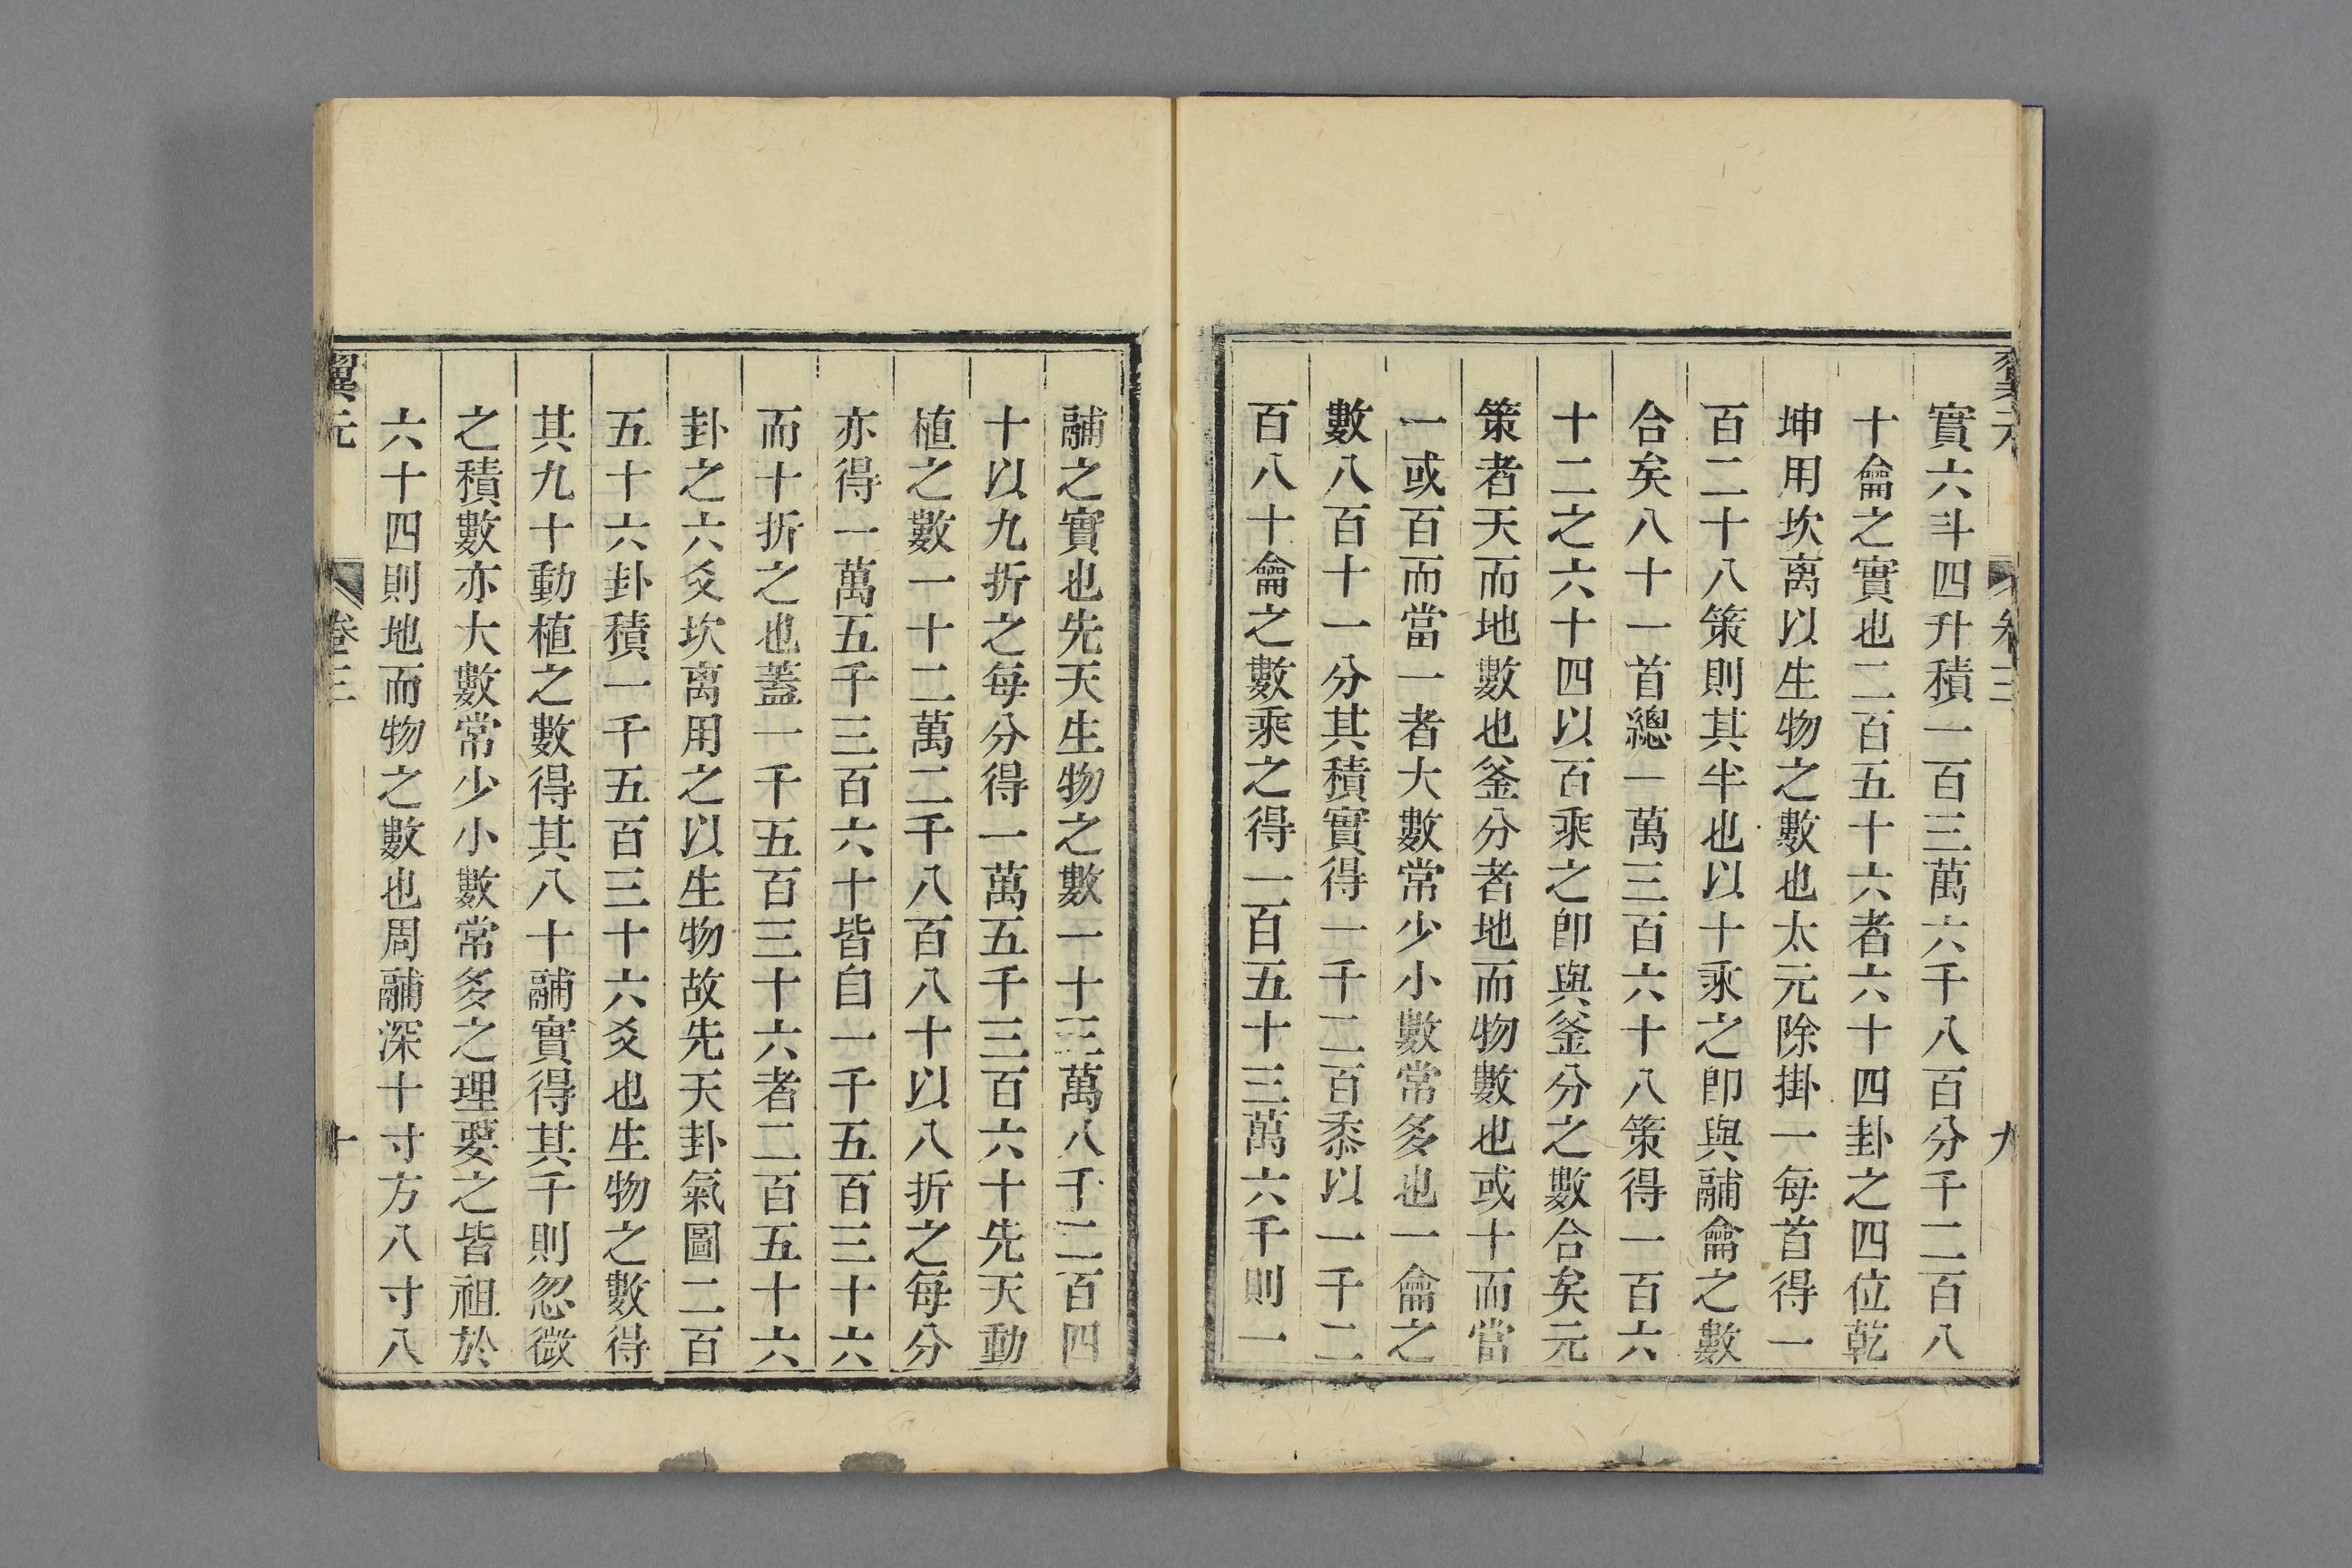 翼元 卷三 九
實六斗四升積一百三萬六千八百分千二百八
十龠之實也二百五十六者六十四卦之四位乾
坤用坎离以生物之數也太元除掛一每首得一
百二十八策則其半也以十乘之卽與鬴龠之數
合矣八十一首總一萬三百六十八策得一百六
十二之六十四以百乘之卽與釜分之數合矣元
策者天而地數也釜分者地而物數也或十而當
一或百而當一者大數常少小數常多也一龠之
數八百十一分其積實得一千二百黍以一千二
百八十龠之數乘之得一百五十三萬六千則一
鬴之實也先天生物之數一十三萬八千二百四
十以九折之每分得一萬五千三百六十先天動
植之數一十二萬二千八百八十以八折之每分
亦得一萬五千三百六十皆自一千五百三十六
而十折之也蓋一千五百三十六者二百五十六
卦之六爻坎离用之以生物故先天卦氣圖二百
五十六卦積一千五百三十六爻也生物之數得
其九十動植之數得其八十鬴實得其千則忽微
之積數亦大數常少小數常多之理要之皆祖於
六十四則地而物之數也周鬴深十寸方八寸八
翼元 卷三 十